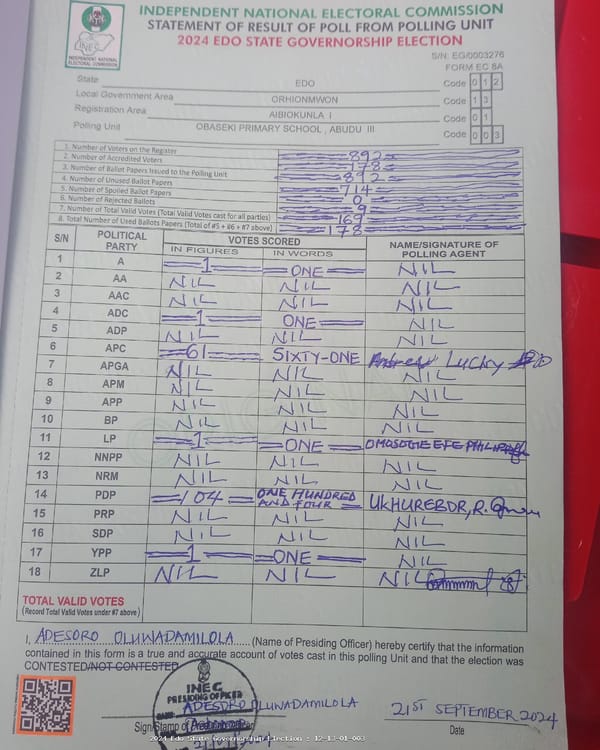 INDEPENDENT NATIONAL ELECTORAL COMMISSION
STATEMENT OF RESULT OF POLL FROM POLLING UNIT
2024 EDO STATE GOVERNORSHIP ELECTION
S/N: EG/0003276
FORM EC 8A
INEC
INDEPENDENT NATIONAL ELECTORAL COMMISSION
State EDO Code 0 1 2
Local Government Area ORHIONMWON Code 1 3
Registration Area AIBIOKUNLA I Code 0 1
Polling Unit OBASEKI PRIMARY SCHOOL, ABUDU III Code 0 0 3
1. Number of Voters on the Register 892
2. Number of Accredited Voters 178
3. Number of Ballot Papers Issued to the Polling Unit 892
4. Number of Unused Ballot Papers 714
5. Number of Spoiled Ballot Papers 0
6. Number of Rejected Ballots 9
7. Number of Total Valid Votes (Total Valid Votes cast for all parties) 169
8. Total Number of Used Ballots Papers (Total of #5 + #6 + #7 above) 178
S/N POLITICAL PARTY VOTES SCORED NAME/SIGNATURE OF POLLING AGENT
IN FIGURES IN WORDS
1 A 1 ONE NIL
2 AA NIL NIL NIL
3 AAC NIL NIL NIL
4 ADC 1 ONE NIL
5 ADP NIL NIL NIL
6 APC 61 SIXTY-ONE Andrew Lucky
7 APGA NIL NIL NIL
8 APM NIL NIL NIL
9 APP NIL NIL NIL
10 BP NIL NIL NIL
11 LP 1 ONE OMOSOGIE EFE PHILIP
12 NNPP NIL NIL NIL
13 NRM NIL NIL NIL
14 PDP 104 ONE HUNDRED AND FOUR UKHUREBOR, R.
15 PRP NIL NIL NIL
16 SDP NIL NIL NIL
17 YPP 1 ONE NIL
18 ZLP NIL NIL NIL
TOTAL VALID VOTES
(Record Total Valid Votes under #7 above)
I, ADESORO OLUWADAMILOLA (Name of Presiding Officer) hereby certify that the information
contained in this form is a true and accurate account of votes cast in this polling Unit and that the election was
CONTESTED/NOT CONTESTED
INEC
PRESIDING OFFICER
ADESORO OLUWADAMILOLA
21ST SEPTEMBER 2024
Sign/Stamp of Presiding Officer
Date
2024 Edo State Governorship Election : 12-13-01-003